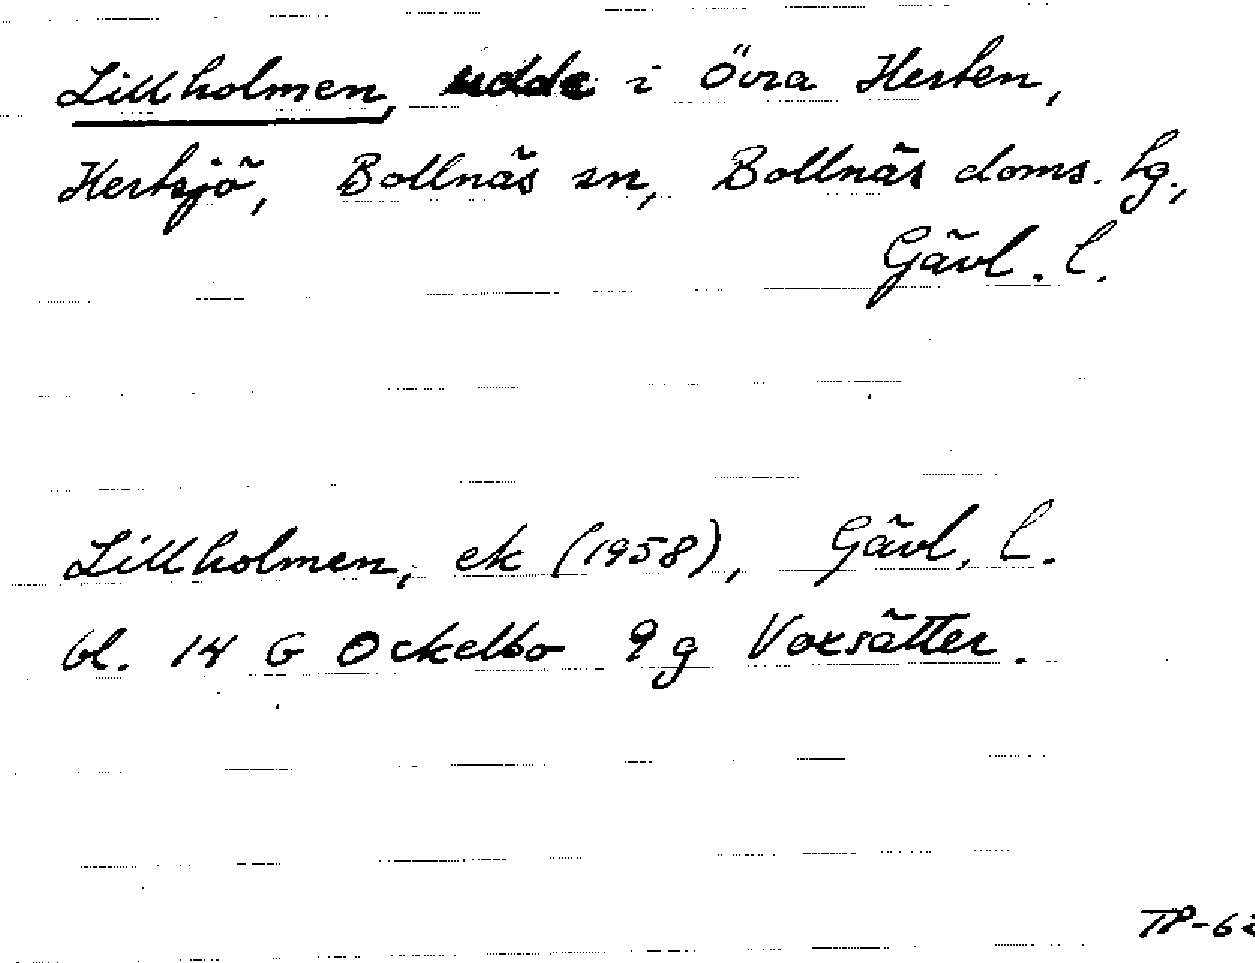 Lillholmen, udde i Övra Herten,
Hertsjö, Bollnäs sn, Bollnäs doms. hg.,
Gävl. l.
Lillholmen, ek (1958), Gävl. l.
bl. 14 G Ockelbo 9 g Voxsätter.
TP-62